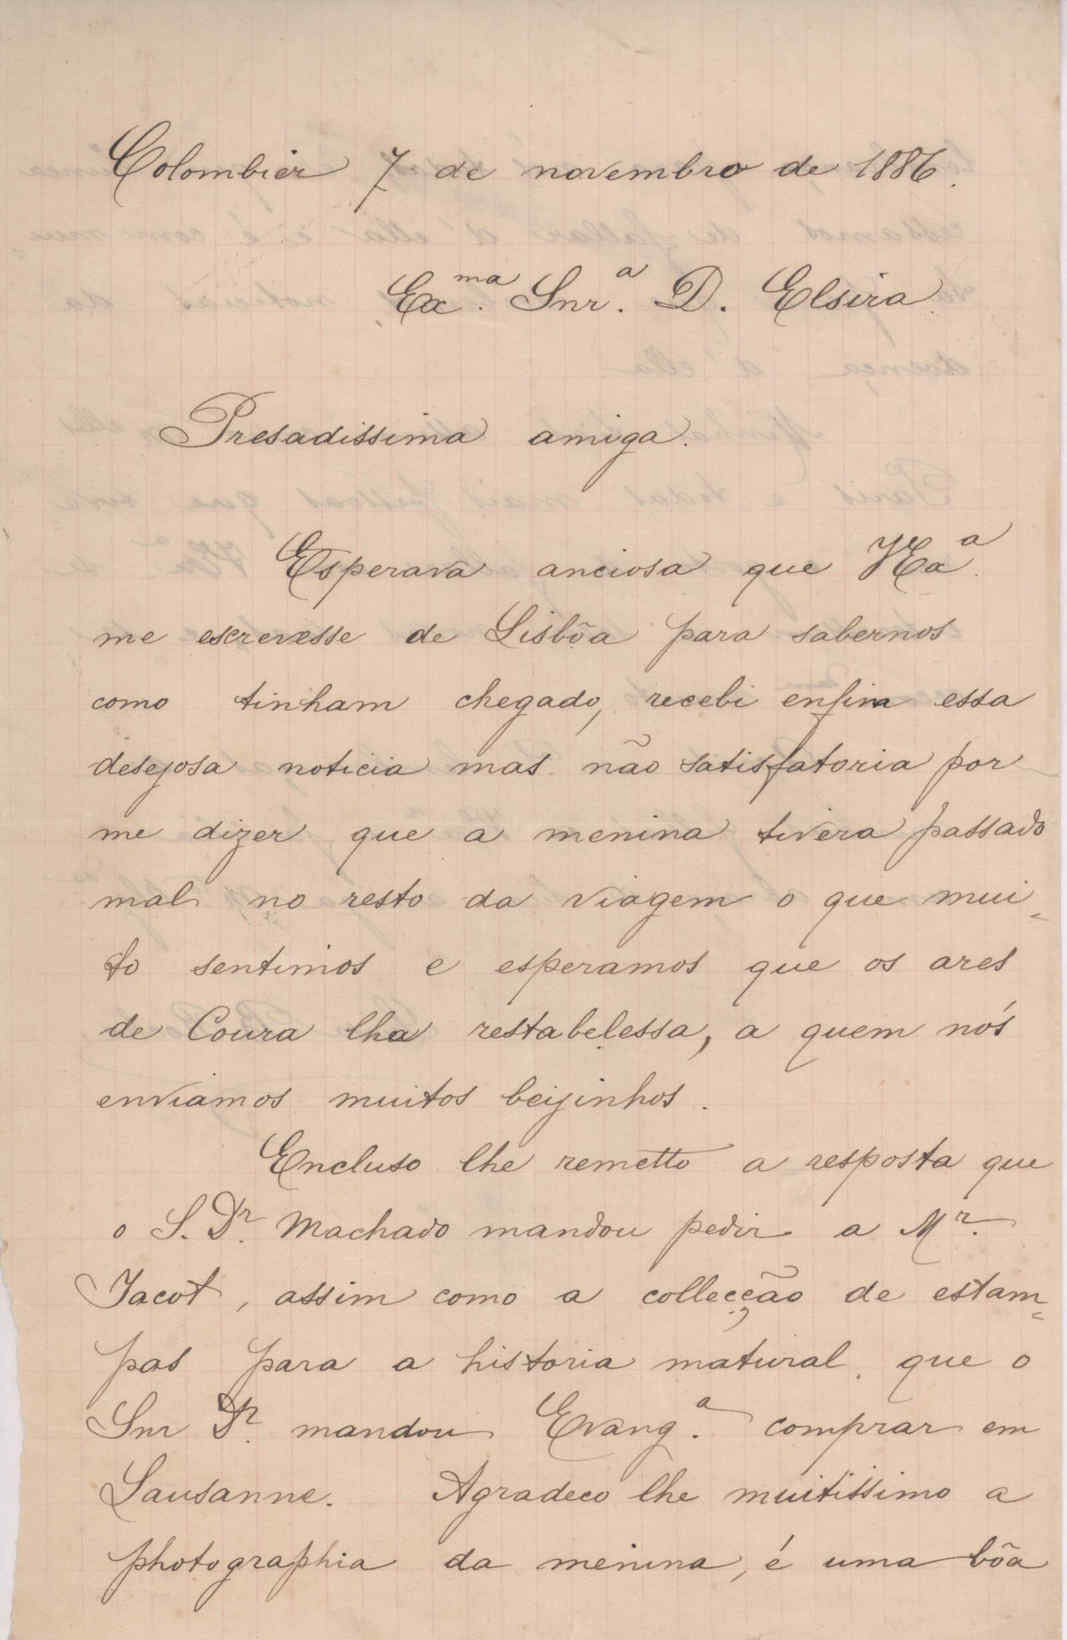 Colombier 7 de novembro de 1886.
Ex.ma Snr.a D. Elsira.
Presadissima amiga.
Esperava anciosa que VExa.
me escrevesse de Lisbõa para sabernos
como tinham chegado, recebi enfim essa
desejosa noticia mas não satisfatoria por
me dizer que a menina tivera passado
mal no resto da viagem o que mui=
to sentimos e esperamos que os ares
de Coura lha restabelessa, a quem nós
enviamos muitos beijinhos.
Encluso lhe remetto a resposta que
o S. Dr. Machado mandou pedir a Mr.
Jacot, assim como a collecção de estam=
pas para a historia matural que o
Snr Dr. mandou Evang.a comprar em
Lausanne. Agradeco lhe muitissimo a
photographia da menina, é uma bõa